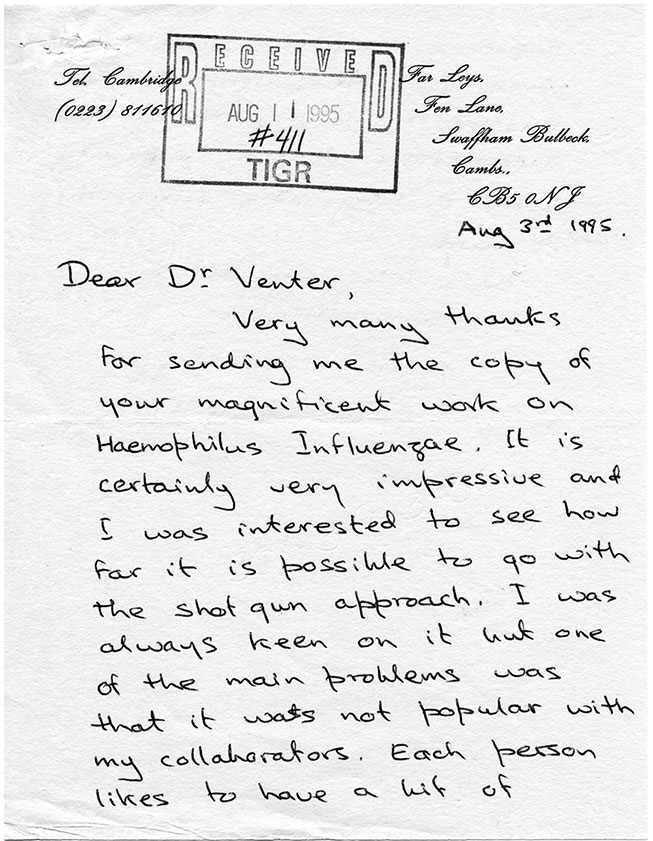 RECEIVED
AUG 11 1995
#411
TIGR
Tel. Cambridge
(0223) 811610
Far Leys,
Fen Lane,
Swaffham Bulbeck,
Cambs.,
CB5 0NJ
Aug 3rd 1995.
Dear Dr Venter,
Very many thanks
for sending me the copy of
your magnificent work on
Haemophilus Influenzae. It is
certainly very impressive and
I was interested to see how
far it is possible to go with
the shot gun approach. I was
always keen on it but one
of the main problems was
that it was not popular with
my collaborators. Each person
likes to have a bit of